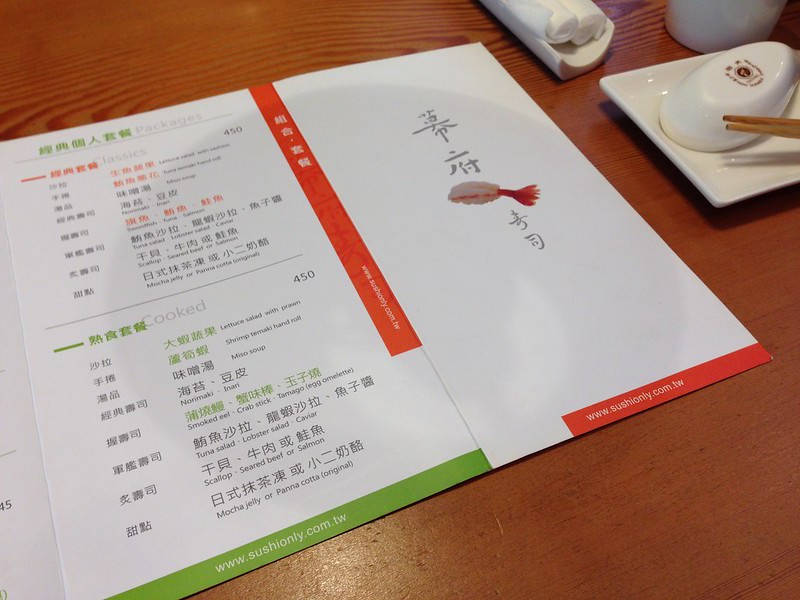 經典個人套餐 Packages
Classics
450
經典套餐
沙拉 生魚蔬果 Lettuce salad with sashimi
手捲 鮪魚蔥花 Tuna temaki hand roll
湯品 味噌湯 Miso soup
經典壽司 海苔、豆皮
Norimaki · Inari
握壽司 旗魚、鮪魚、鮭魚
Swordfish · Tuna · Salmon
軍艦壽司 鮪魚沙拉、龍蝦沙拉、魚子醬
Tuna salad · Lobster salad · Caviar
炙壽司 干貝、牛肉 或 鮭魚
Scallop · Seared beef or Salmon
甜點 日式抹茶凍 或 小二奶酪
Mocha jelly or Panna cotta (original)
450
熟食套餐 Cooked
沙拉 大蝦蔬果 Lettuce salad with prawn
手捲 蘆筍蝦 Shrimp temaki hand roll
湯品 味噌湯 Miso soup
經典壽司 海苔、豆皮
Norimaki · Inari
握壽司 蒲燒鰻、蟹味棒、玉子燒
Smoked eel · Crab stick · Tamago (egg omelette)
軍艦壽司 鮪魚沙拉、龍蝦沙拉、魚子醬
Tuna salad · Lobster salad · Caviar
炙壽司 干貝、牛肉 或 鮭魚
Scallop · Seared beef or Salmon
甜點 日式抹茶凍 或 小二奶酪
Mocha jelly or Panna cotta (original)
www.sushionly.com.tw
45
組合·套餐
www.sushionly.com.tw
幕府
壽司
www.sushionly.com.tw